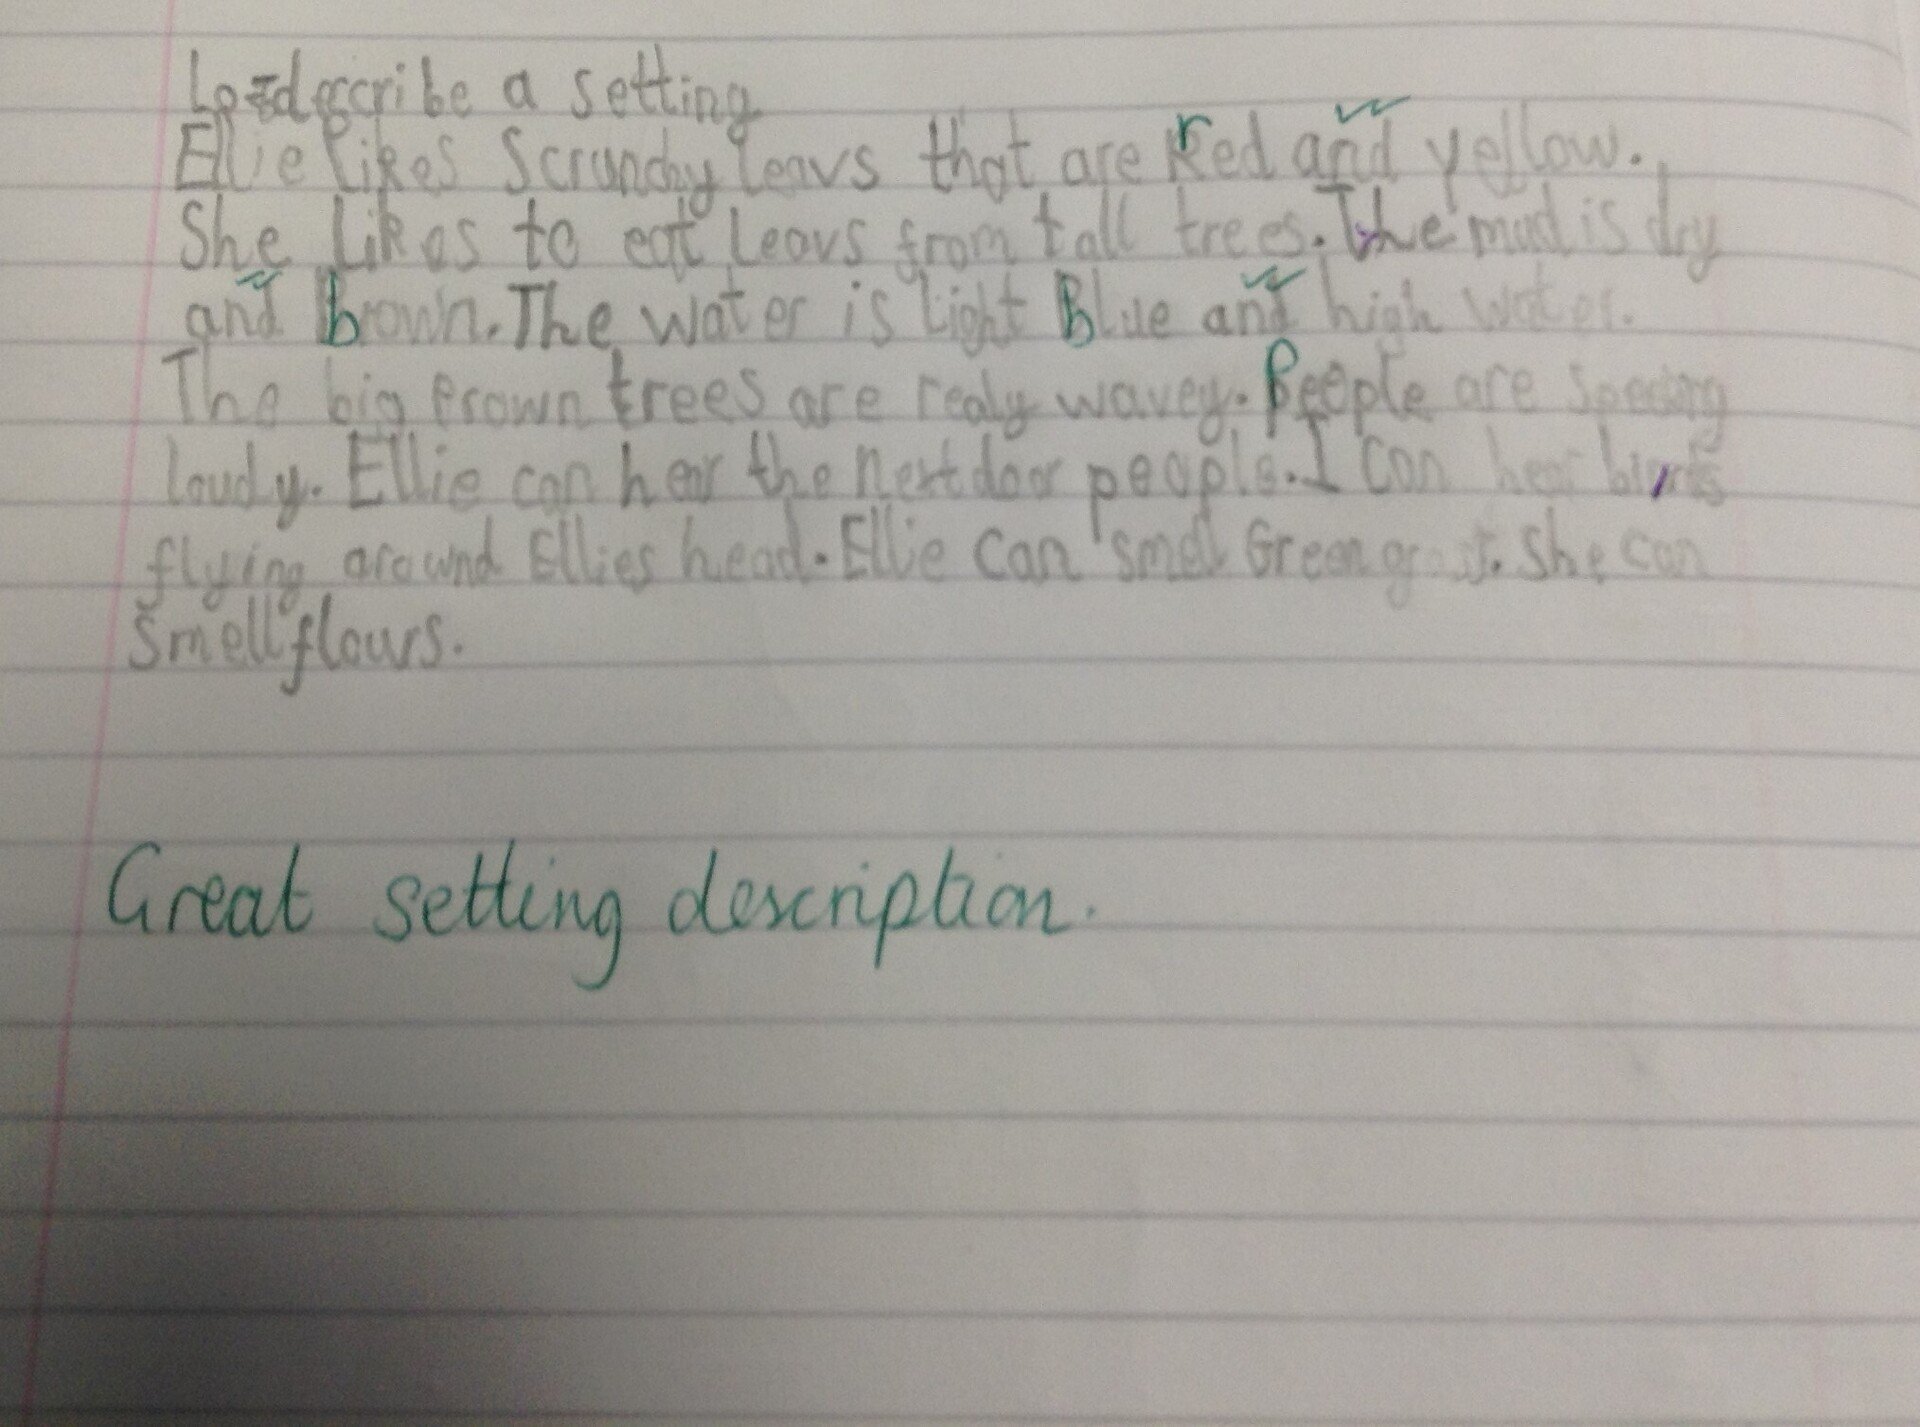 Lo-describe a setting
Ellie likes Scrunchy leavs that are red and yellow.
She likes to eat leavs from tall trees. The mud is dry
and brown. The water is light blue and high water.
The big Brown trees are realy wavey. People are
loudy. Ellie can hear the next door people. I can hear birds
flying around Ellies head. Ellie can smell Green. She can
Smell flowrs.
Great setting description.